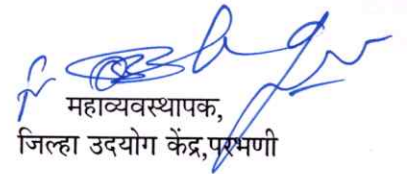 महाव्यवस्थापक,
जिल्हा उदयोग केंद्र,परभणी